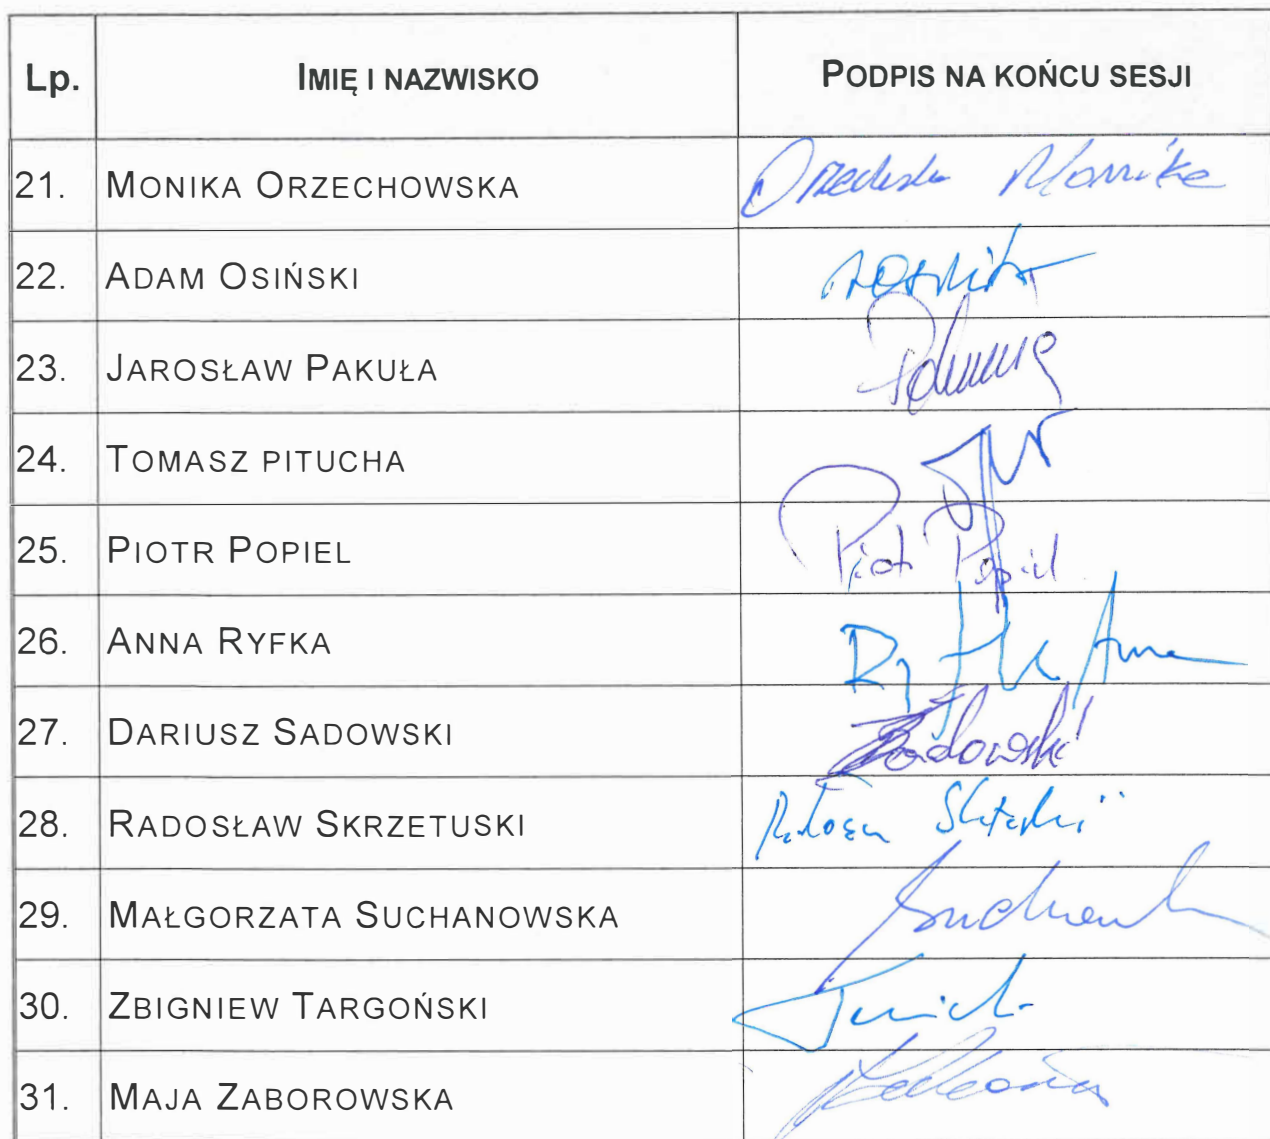 Lp. IMIĘ I NAZWISKO PODPIS NA KOŃCU SESJI
21. MONIKA ORZECHOWSKA Monika
22. ADAM OSIŃSKI
23. JAROSŁAW PAKUŁA
24. TOMASZ PITUCHA
25. PIOTR POPIEL Piotr Popiel
26. ANNA RYFKA Ryfka Anna
27. DARIUSZ SADOWSKI Sadowski
28. RADOSŁAW SKRZETUSKI
29. MAŁGORZATA SUCHANOWSKA
30. ZBIGNIEW TARGOŃSKI
31. MAJA ZABOROWSKA